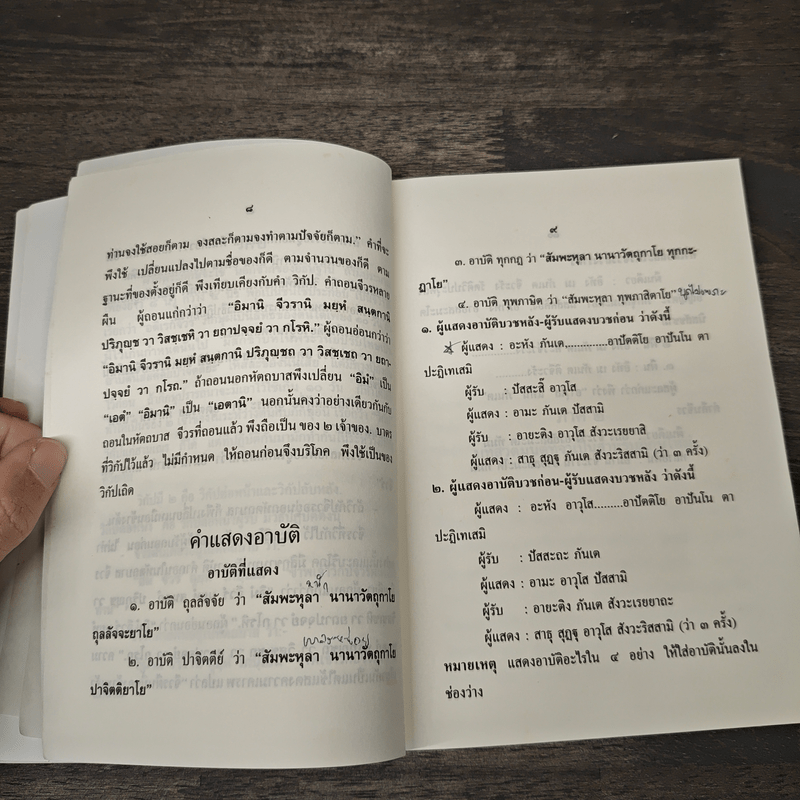 ๘
ท่านจงใช้สอยก็ตาม จงสละก็ตามจงทำตามปัจจัยก็ตาม.” คำที่จะ
พึงใช้ เปลี่ยนแปลงไปตามชื่อของก็ดี ตามจำนวนของก็ดี ตาม
ฐานะที่ของตั้งอยู่ก็ดี พึงเทียบเคียงกับคำ วิกัป. คำถอนจีวรหลาย
ผืน ผู้ถอนแก่กว่าว่า “อิมานิ จีวรานิ มยฺหํ สนฺตกานิ
ปริภุญฺช วา วิสชฺเชหิ วา ยถาปจฺจยํ วา กโรหิ.” ผู้ถอนอ่อนกว่าว่า
“อิมานิ จีวรานิ มยฺหํ สนฺตกานิ ปริภุญฺชถ วา วิสชฺเชถ วา ยถา-
ปจฺจยํ วา กโรถ.” ถ้าถอนนอกหัตถบาสพึงเปลี่ยน “อิมํ” เป็น
“เอตํ” “อิมานิ” เป็น “เอตานิ” นอกนั้นคงว่าอย่างเดียวกันกับ
ถอนในหัตถบาส จีวรที่ถอนแล้ว พึงถือเป็น ของ ๒ เจ้าของ. บาตร
ที่วิกัปไว้แล้ว ไม่มีกำหนด ให้ถอนก่อนจึงบริโภค พึงใช้เป็นของ
วิกัปเถิด
คำแสดงอาบัติ
อาบัติที่แสดง
๑. อาบัติ ถุลลัจจัย ว่า “สัมพะหุลา นานาวัตถุกาโย
ถุลลัจจะยาโย”
๒. อาบัติ ปาจิตตีย์ ว่า “สัมพะหุลา นานาวัตถุกาโย
ปาจิตติยาโย”
๙
๓. อาบัติ ทุกกฏ ว่า “สัมพะหุลา นานาวัตถุกาโย ทุกกะ-
ฏาโย”
๔. อาบัติ ทุพภาษิต ว่า “สัมพะหุลา ทุพภาสิตาโย”
๑. ผู้แสดงอาบัติบวชหลัง-ผู้รับแสดงบวชก่อน ว่าดังนี้
ผู้แสดง : อะหัง ภันเต.............อาปัตติโย อาปันโน ตา
ปะฏิเทเสมิ
ผู้รับ : ปัสสะสิ๊ อาวุโส
ผู้แสดง : อามะ ภันเต ปัสสามิ
ผู้รับ : อายะติง อาวุโส สังวะเรยยาสิ
ผู้แสดง : สาธุ สุฏฐุ ภันเต สังวะริสสามิ (ว่า ๓ ครั้ง)
๒. ผู้แสดงอาบัติบวชก่อน-ผู้รับแสดงบวชหลัง ว่าดังนี้
ผู้แสดง : อะหัง อาวุโส.........อาปัตติโย อาปันโน ตา
ปะฏิเทเสมิ
ผู้รับ : ปัสสะถะ ภันเต
ผู้แสดง : อามะ อาวุโส ปัสสามิ
ผู้รับ : อายะติง ภันเต สังวะเรยยาถะ
ผู้แสดง : สาธุ สุฏฐุ อาวุโส สังวะริสสามิ (ว่า ๓ ครั้ง)
หมายเหตุ แสดงอาบัติอะไรใน ๔ อย่าง ให้ใส่อาบัตินั้นลงใน
ช่องว่าง